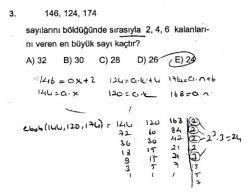 3. 146, 124, 174
sayılarını böldüğünde sırasıyla 2, 4, 6 kalanları-
nı veren en büyük sayı kaçtır?
A) 32 B) 30 C) 28 D) 26 E) 24
146 = a.x + 2 124 = a.k + 4 174 = a.n + 6
144 = a.x 120 = a.k 168 = a.n
ebob(144, 120, 174) = 144 120 168 2
72 60 84 2
36 30 42 2 → 2³.3 = 24
18 15 21 2
9 15 21 3
3 5 7